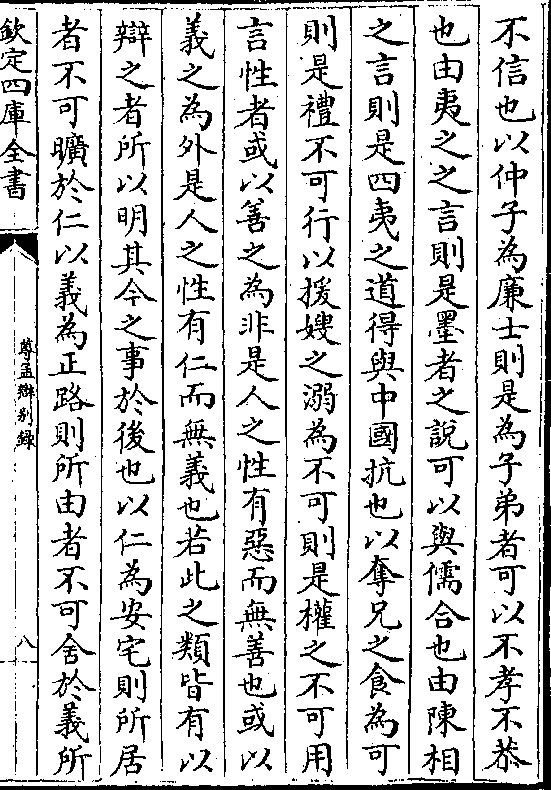 不信也以仲子為廉士則是為子弟者可以不孝不恭
也由夷之之言則是墨者之說可以與儒合也由陳相
之言則是四夷之道得與中國抗也以奪兄之食為可
則是禮不可行以援嫂之溺為不可則是權之不可用
言性者或以善之為非是人之性有惡而無善也或以
義之為外是人之性有仁而無義也若此之類皆有以
辯之者所以明其今之事於後也以仁為安宅則所居
者不可曠於仁以義為正路則所由者不可舍於義所
欽定四庫全書
尊孟辯别錄
八